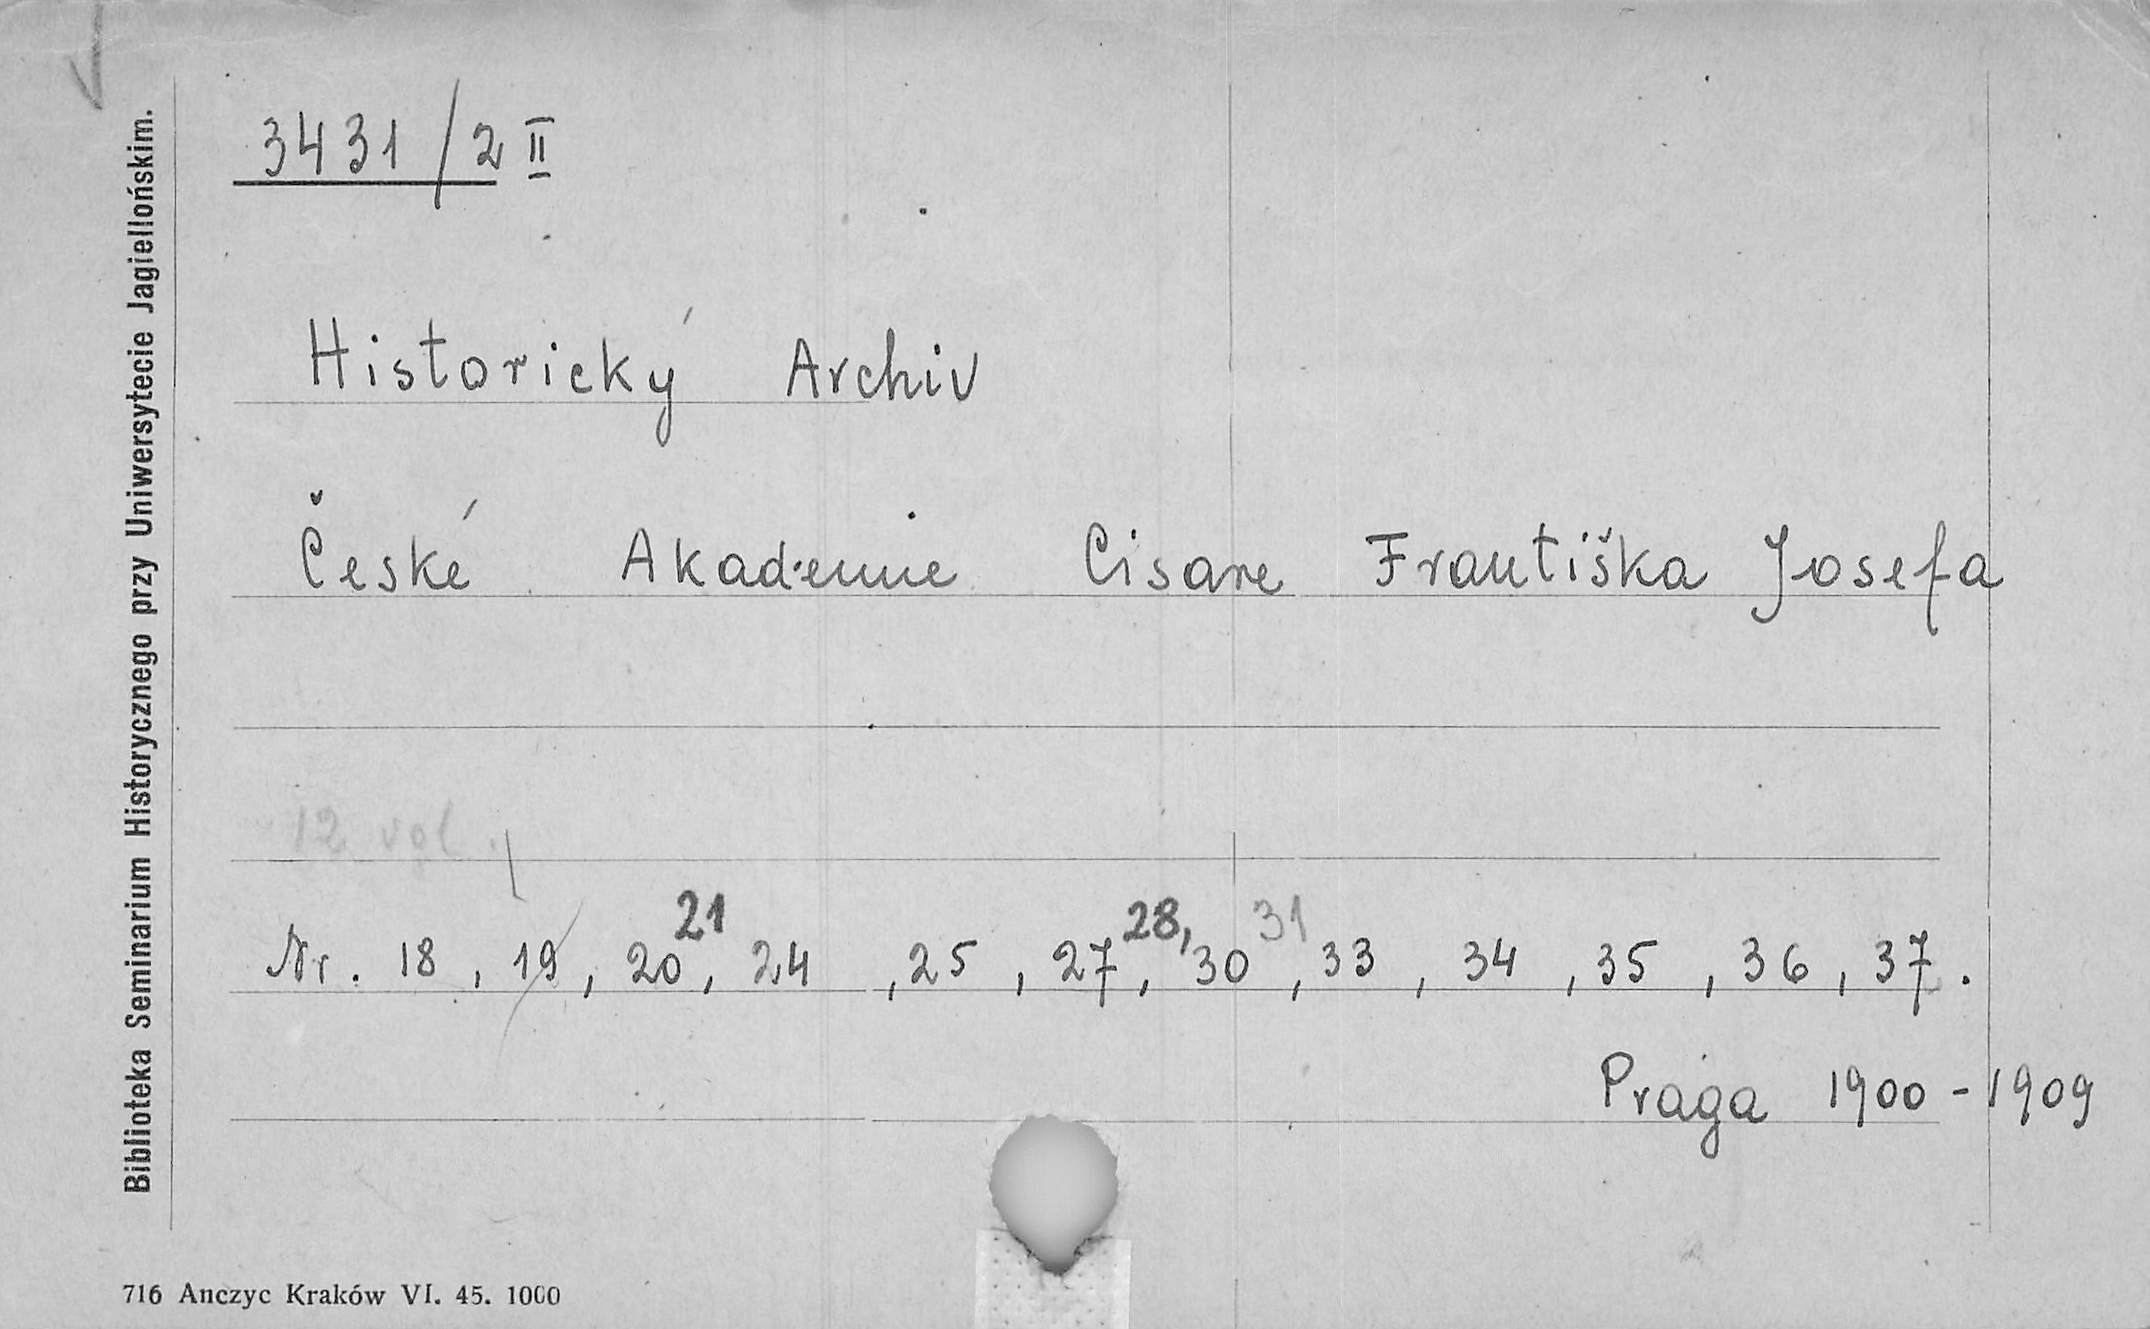 Biblioteka Seminarium Historycznego przy Uniwersytecie Jagiellońskim.
3431/2 II
Historický Archiv
České Akademie Cisare Františka Josefa
12 vol.
21 28, 31
Nr. 18, 19, 20, 24, 25, 27, 30, 33, 34, 35, 36, 37.
Praga 1900-1909
716 Anczyc Kraków VI. 45. 1000